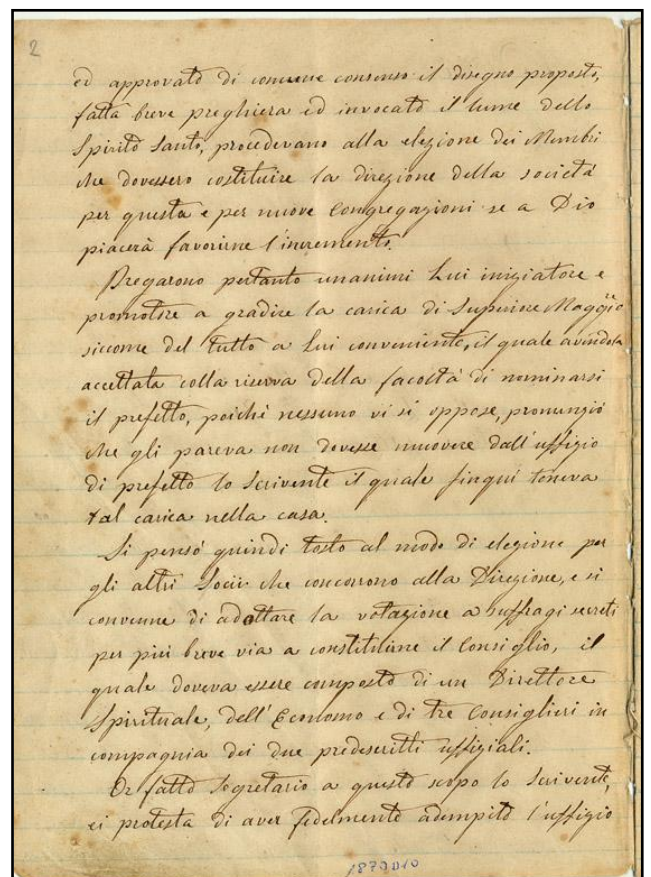 2
ed approvato di comune consenso il disegno proposto,
fatta breve preghiera ed invocato il lume dello
Spirito Santo, procedevano alla elezione dei Membri
che dovessero costituire la direzione della società
per questa e per nuove Congregazioni se a Dio
piacerà favorirne l'incremento.
Pregarono pertanto unanimi Lui iniziatore e
promotore a gradire la carica di Superiore Maggiore
siccome del tutto a Lui conveniente, il quale avendola
accettata colla riserva della facoltà di nominarsi
il prefetto, poichè nessuno vi si oppose, pronunziò
che gli pareva non dovesse muovere dall'uffizio
di prefetto lo Scrivente il quale finquì teneva
tal carica nella casa.
Si pensò quindi tosto al modo di elezione per
gli altri Socii che concorrono alla Direzione, e si
convenne di adottare la votazione a suffragi secreti
per più breve via a constituirne il Consiglio, il
quale doveva essere composto di un Direttore
Spirituale, dell'Economo e di tre Consiglieri in
compagnia dei due predescritti uffiziali.
Or fatto Segretario a questo scopo lo Scrivente,
ei protesta di aver fedelmente adempito l'uffizio